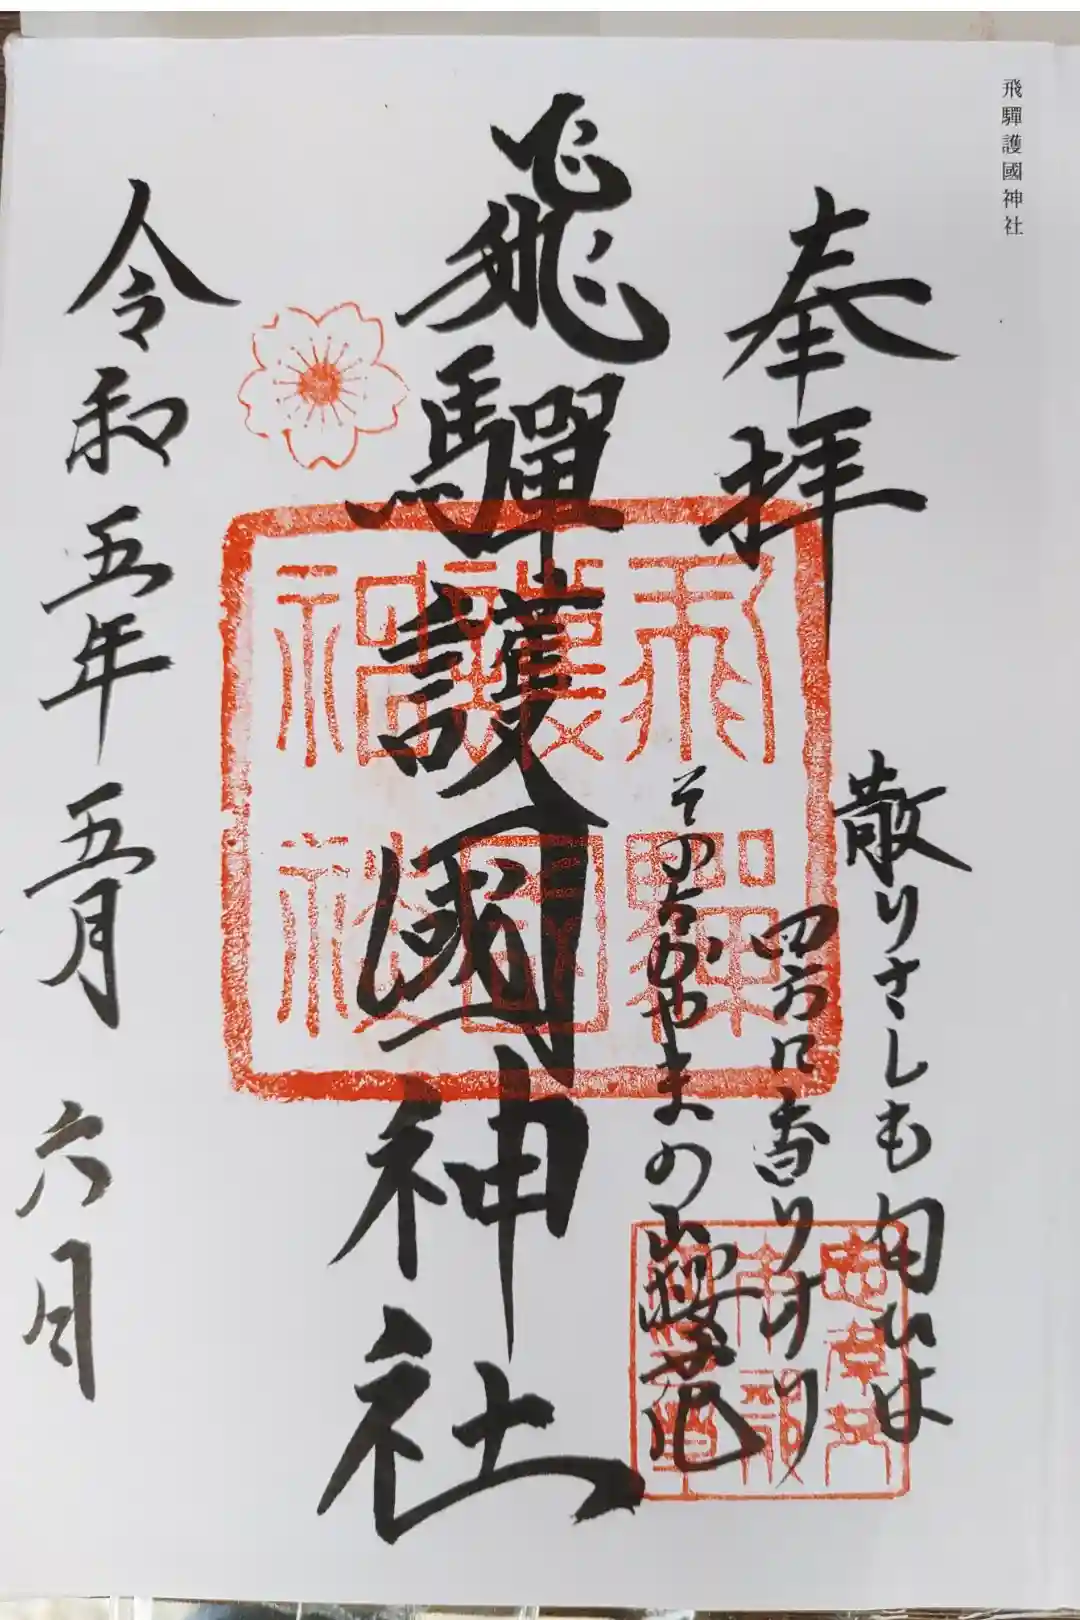 飛驒護國神社
奉拝
散りさしも匂ひは
四方に香りけり
やまの山桜花
飛驒護國神社
飛驒
護國
神社
令和五年五月六日